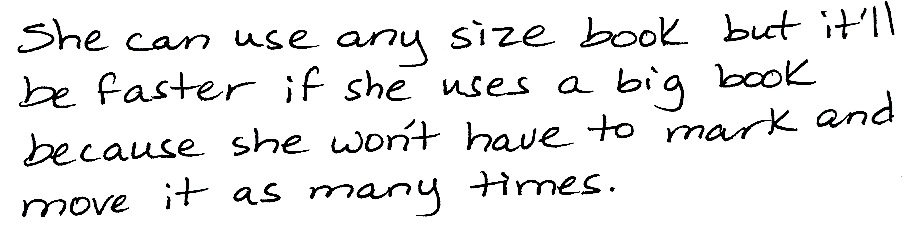 She can use any size book but it'll
be faster if she uses a big book
because she won't have to mark and
move it as many times.